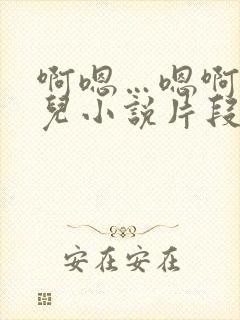 啊嗯…嗯啊
兒小說片段
安在安在